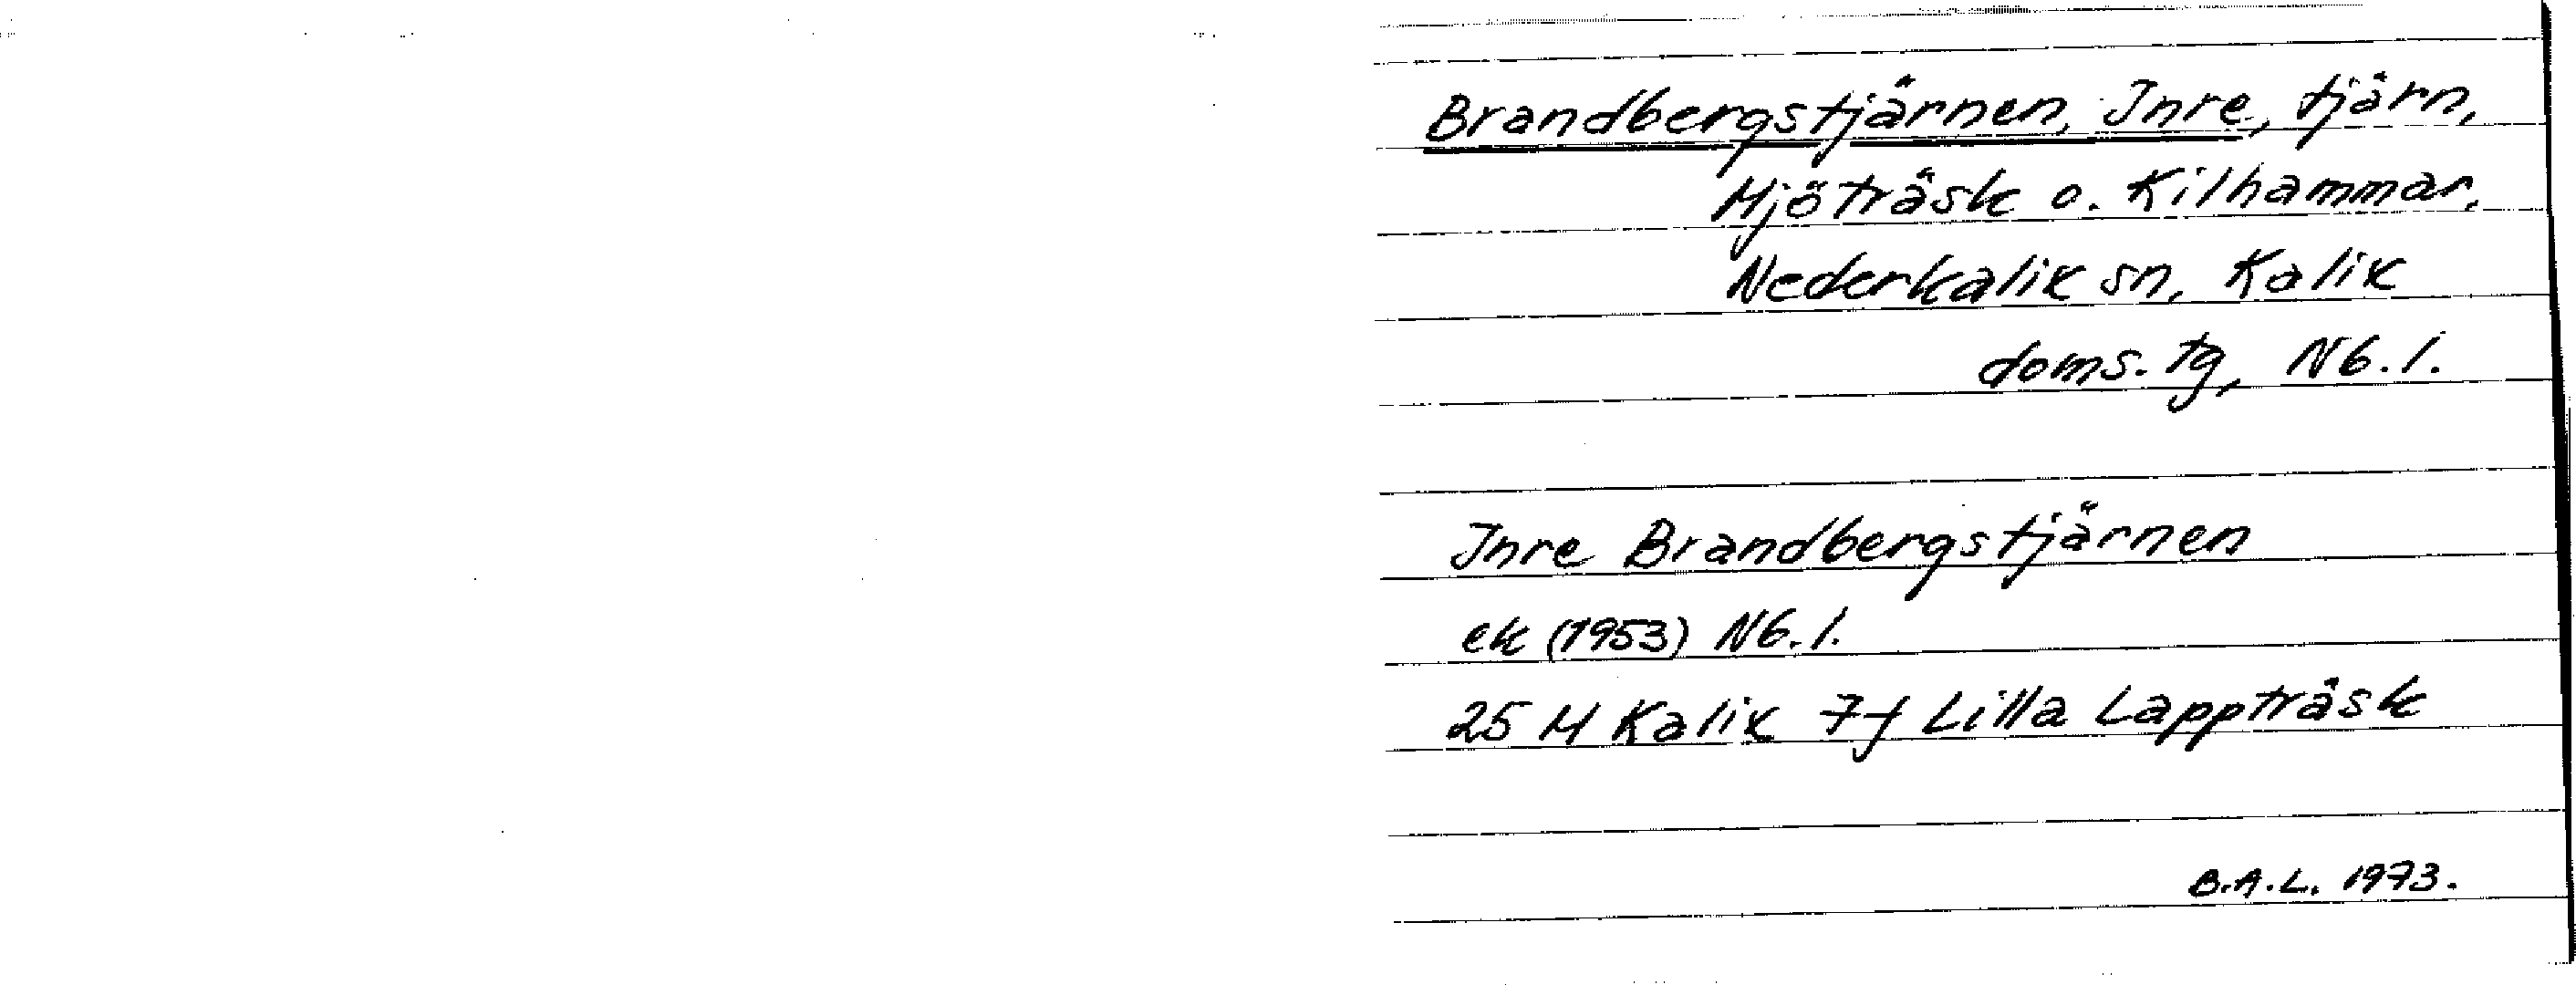 Brandbergstjärnen, Inre, tjärn,
Mjöträsk o. Kilhammar,
Nederkalix sn, Kalix
doms. tg, Nb. l.
Inre Brandbergstjärnen
ek (1953) Nb. l.
25 M Kalix 7f Lilla Lappträsk
B.A.L. 1973.